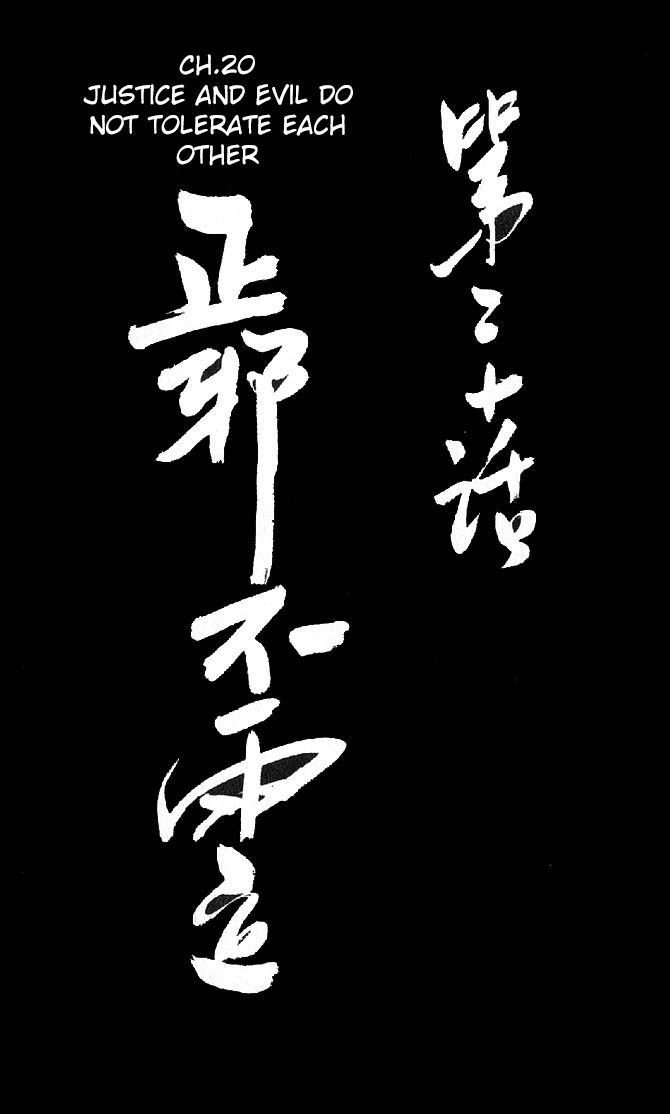 CH.20
JUSTICE AND EVIL DO
NOT TOLERATE EACH
OTHER
第二十話
正邪不両立